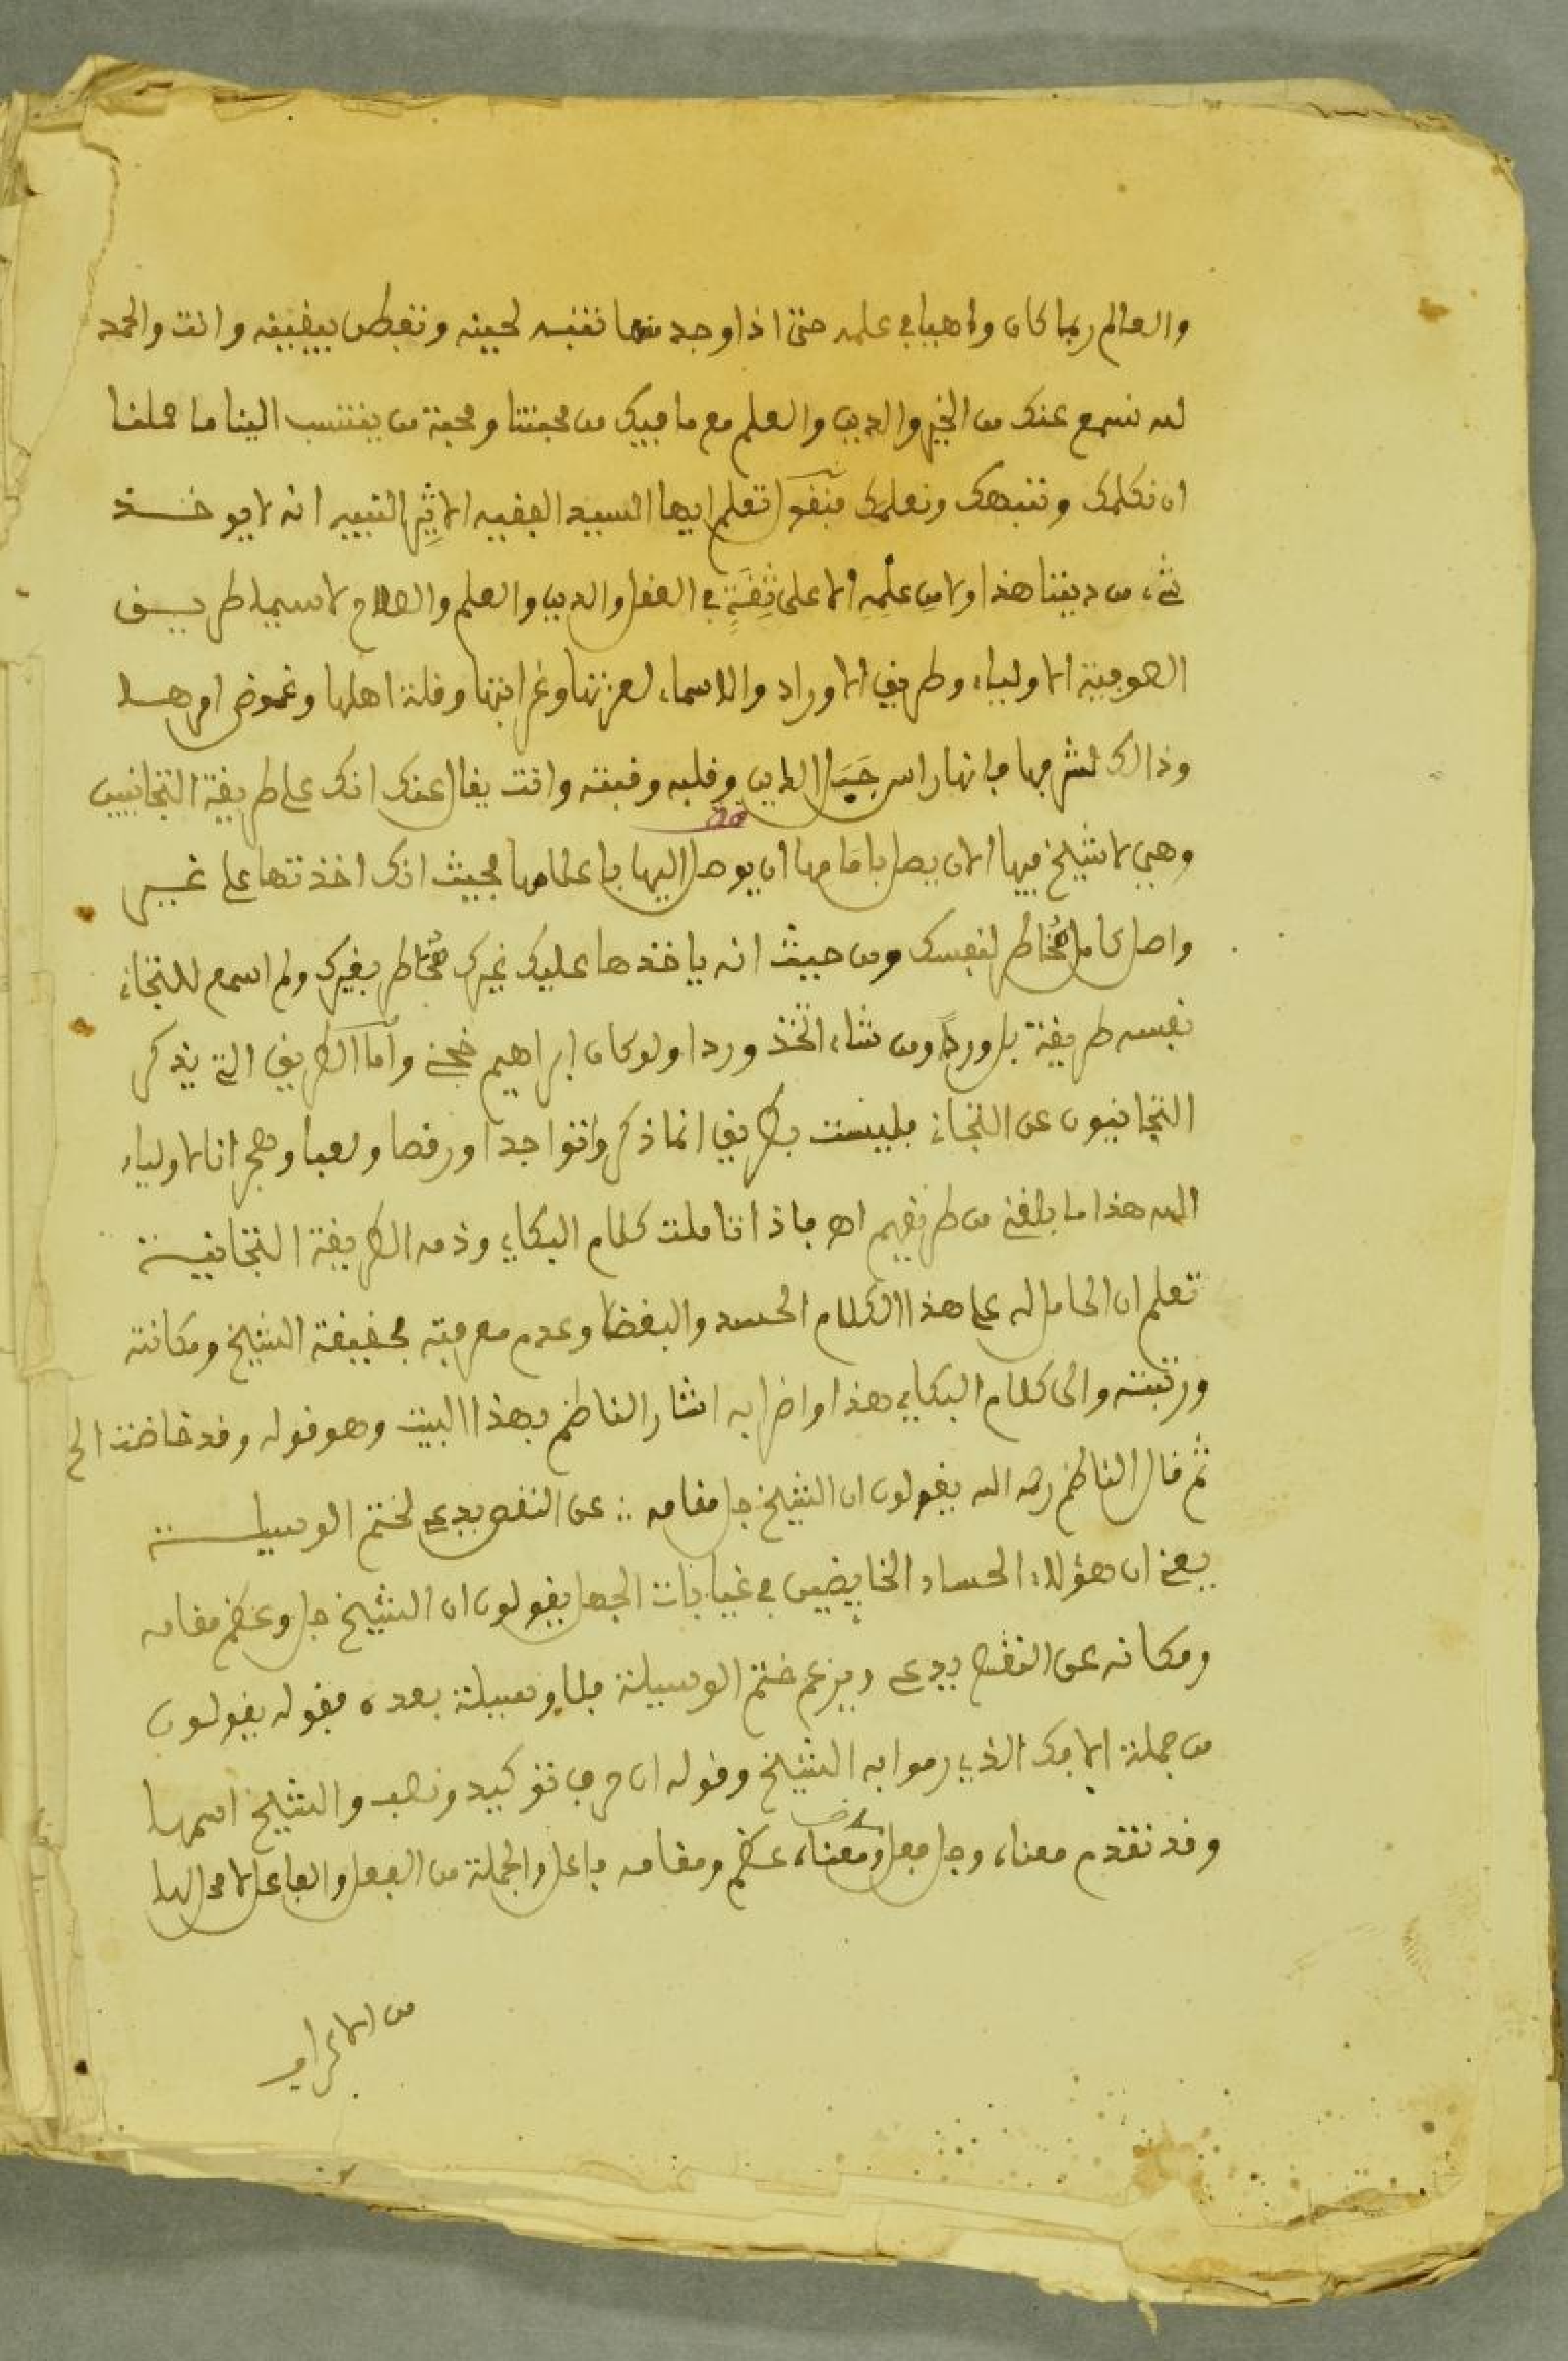 والعالم ربما كان واهيا في علمه حتى اذا وجد منها تنبه لحينه وتفطن بيقينه وانت والحمد
لله نسمع عنك من الخير والدين والعلم مع ما فيك من محبتنا ومحبة من ينتسب الينا ما حملنا
ان نكلمك وننبهك ونعلمك فنقول تعلم ايها السيد الفقيه الاثير النبيه انه لا يوخذ
شيء من ديننا هذا ولا من علمه الا على ثقة في العقل والدين والعلم والصلاح لا سيما طريق
الصوفية الاولياء وطريق الاوراد والاسماء لعزتها وغرابتها وقلة اهلها وغموض امرها
وذالك لشرفها فانها راس جبل الدين وقلبه وقبته وانت يقال عنك انك على طريقة التجانيين
وهي لا شيخ فيها الان يصل بافامها ان يوصل اليها باعلامها فحيث انك اخذتها على غير
واصل كامل مخاطر لنفسك ومن حيث انه ياخذها عليك غيرك مخاطر بغيرك ولم اسمع للتجاني
نفسه طريقة بل وردا ومن شاء اتخذ وردا ولو كان ابراهيم خجني واما الطريق التي يذكر
التجانيون عن التجاني فليست بطريق انما ذكر واتواجدا ورقصا ولعبا وهجرانا لاولياء
الله هذا ما بلغني من طريقهم اهـ فاذا تاملت كلام البكاي وذمه الطريقة التجانية
تعلم ان الحامل له على هذا الكلام الحسد والبغضا وعدم معرفته بحقيقة الشيخ ومكانته
ورتبته والى كلام البكاي هذا واضرابه اشار الناظم بهذا البيت وهو قوله وقد خاضت الخ
ثم قال الناظم رحمه الله يقولون ان الشيخ جل مقامه ∴ عن النقص يدعي لختم الوسيلة
يعني ان هؤلاء الحساد الخايضين في غيابات الجهل يقولون ان الشيخ جل وعظم مقامه
ومكانه عن النقص يدعي ويزعم ختم الوسيلة فلا وسيلة بعده فقوله يقولون
من جملة الافك الذي رموا به الشيخ وقوله ان حرف توكيد ونصب والشيخ اسمها
وقد تقدم معناه وجل فعل ماض ومعناه عظم ومقامه فاعل والجملة من الفعل والفاعل لا محل لها
من الاعراب